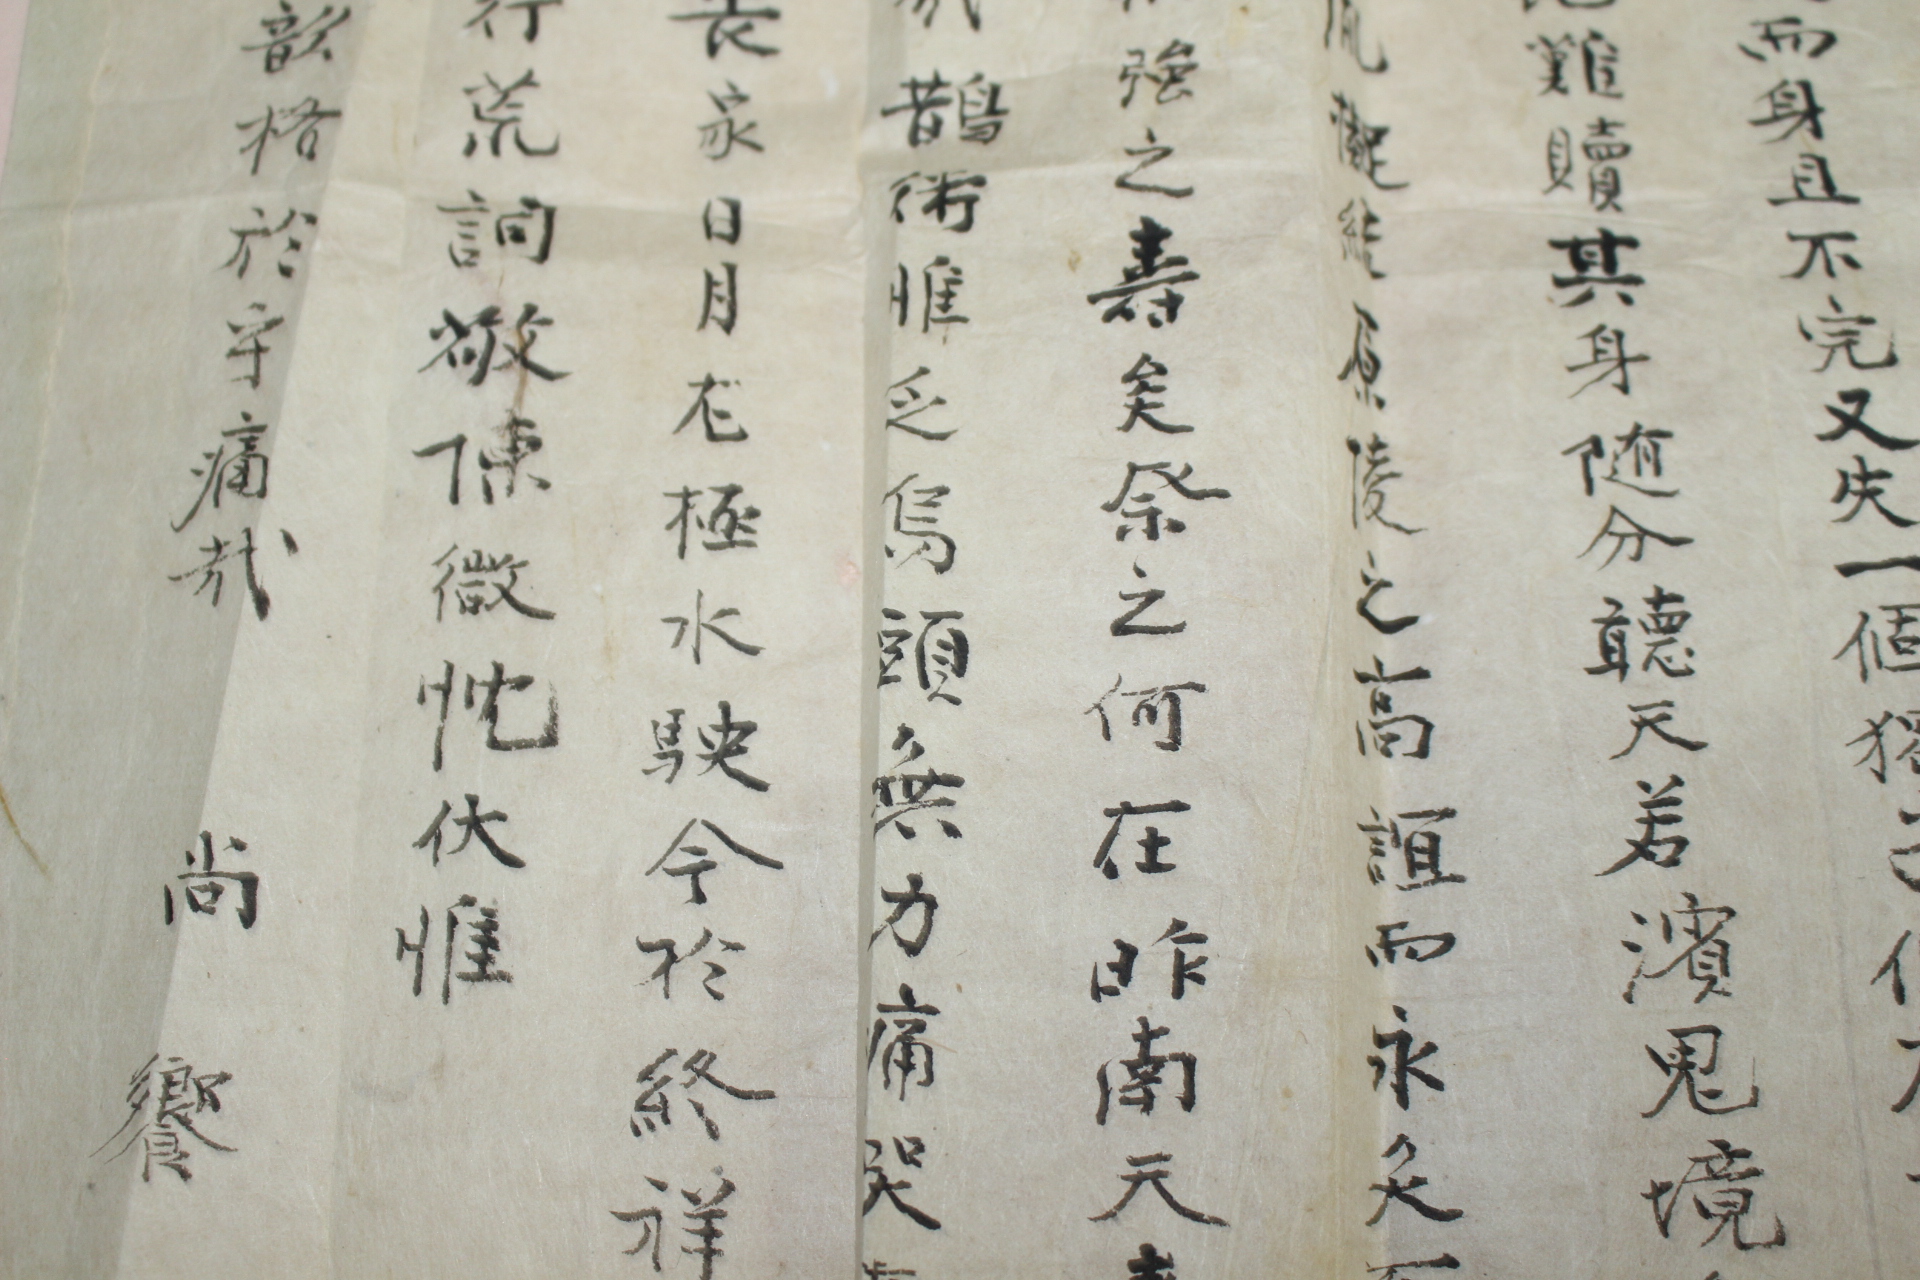 而身且不完又失一個獨
難贖其身随分聽天若濱鬼境
原陵之高誼而永矣
強之壽矣祭之何在昨南天
鵲術惟乏烏頭無力痛哭
喪家日月尤極水駛今於終祥
行荒詞敬陳微忱伏惟
歆格於乎痛哉 尚 饗